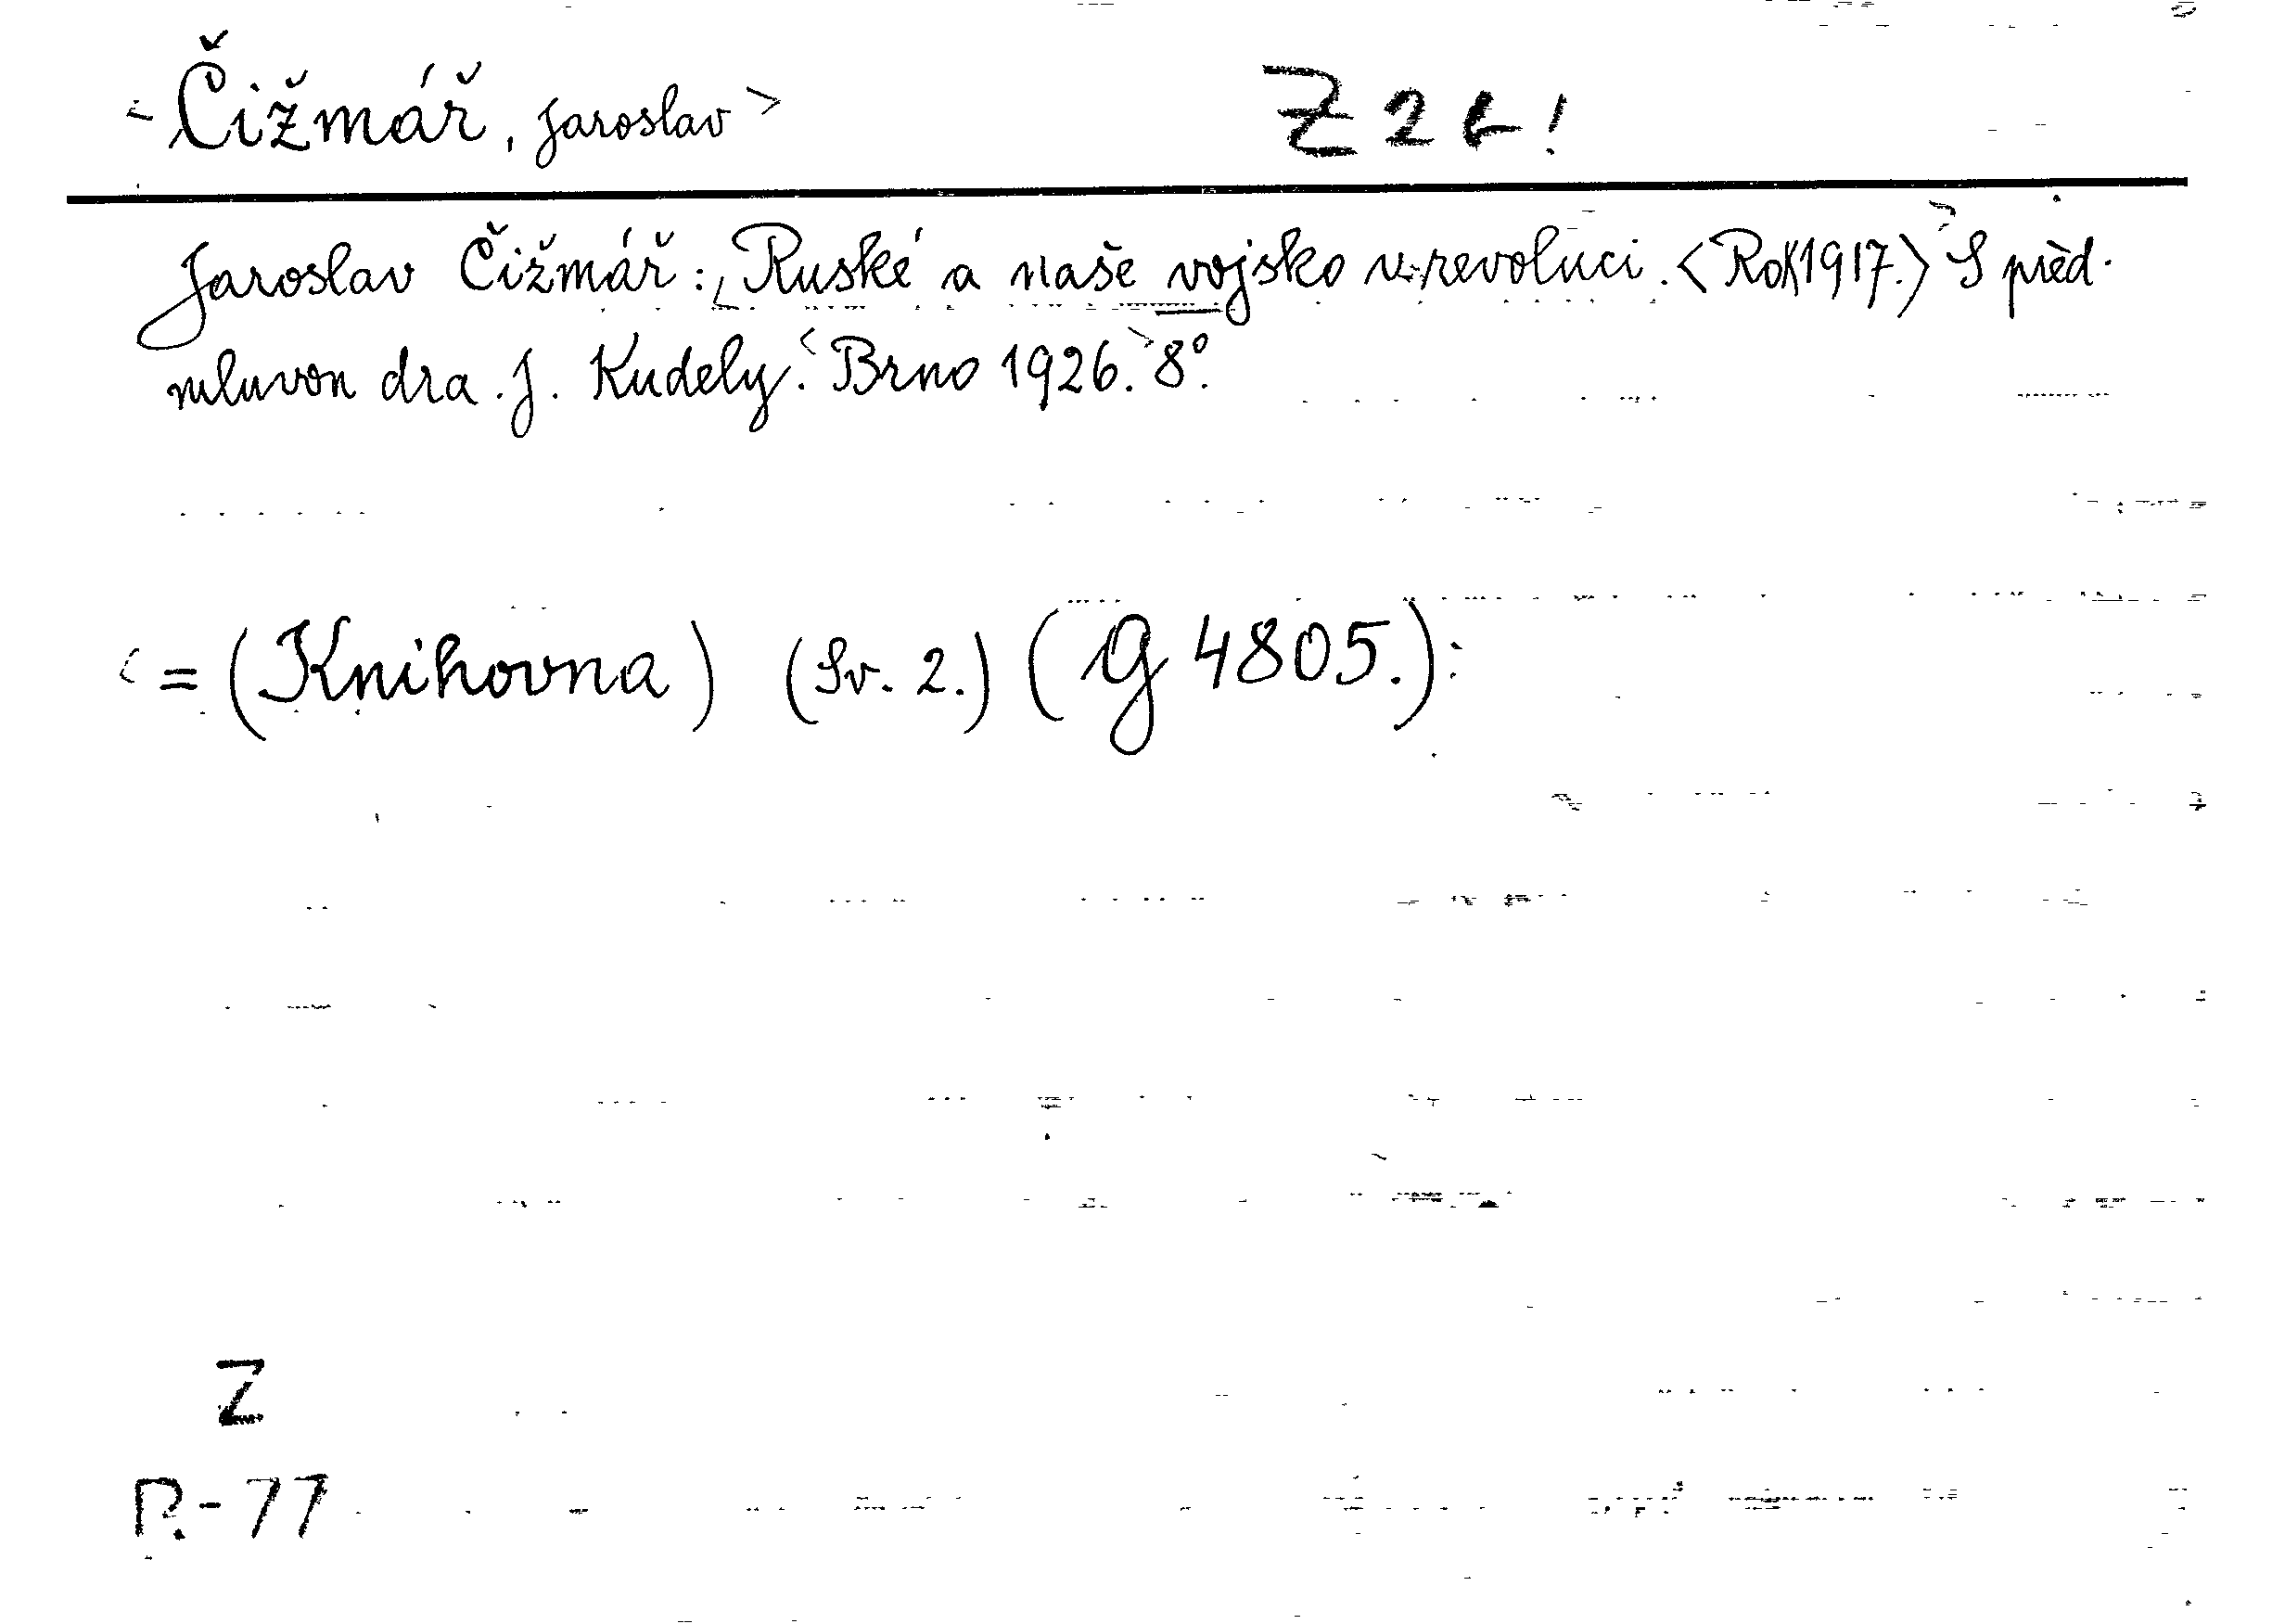 <Čižmář, Jaroslav>
Z 2
Jaroslav Čižmář: <Ruské a naše vojsko v revoluci. <Rok 1917.>> S před-
mluvou dra. J. Kudely. <Brno 1926.> 8°.
<= (Knihovna) (Sv. 2.) (G 4805.):
Z
P.-77